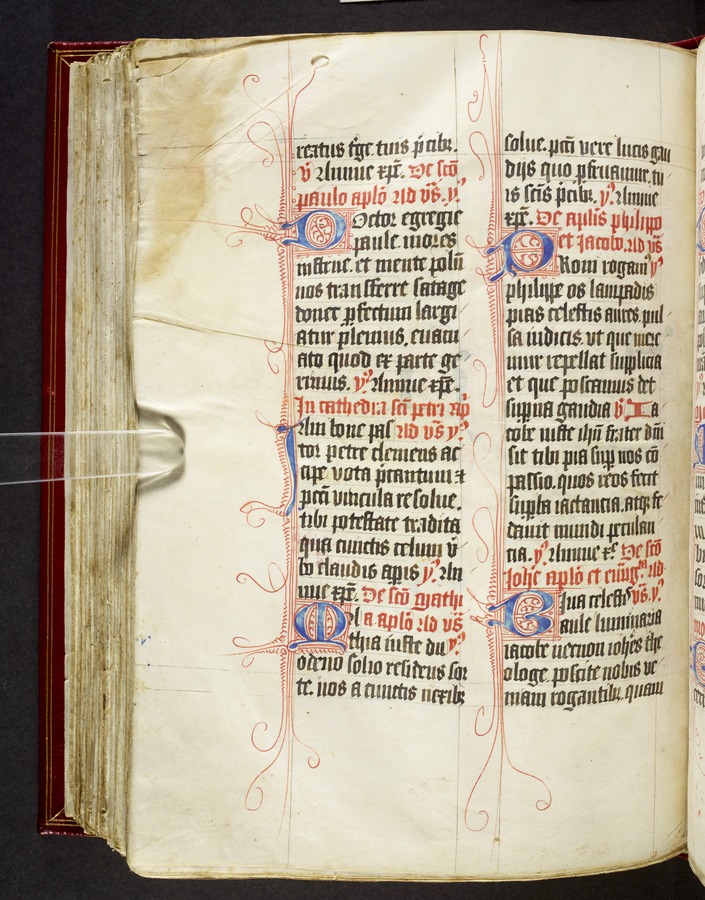 reatus tege tuis p̄cib⁊.
v̉ Annue xp̄e. De sc̄o
paulo aplō ad vs̄. y̓.
Doctor egregie
paule mores
instrue. et mente polū
nos transferre satage
donec ꝑfectum largi
atur plenius. euacu
ato quod ex parte ge
rimus. y̓. Annue xp̄e.
In cathedra sc̄i petri ap̄
Iam bone pas ad vs̄ y̓.
tor petre clemens ac
cipe vota p̄cantium ⁊
pctī vincula resolue.
tibi potestate tradita
qua cunctis celum v̓
bo claudis apis y̓. An
nue xp̄e. De sc̄o Mathi
a aplō ad vs̄
Mathia iuste du y̓.
odeno solio residens sor
te. nos a cunctis nexib⁊
solue. pctī vere lucis gau
diis quo ꝑfruamur. tu
is sc̄is p̄cib⁊. y̓. Annue
xp̄e. De aplīs philippo
et Jacobo. ad vs̄
Proni rogamᵘ y̓
philippe os lampadis
pias celestis aures. pul
sa iudicis. vt que mere
mur repellat supplicia
et que poscamus det
superna gaudia v̓. Ia
cobe iuste ihū frater dn̄i
sit tibi pia sup nos cō
passio. quos reos fecit
supba iactancia. atq⁊ fe
dauit mundi petulan
cia. y̓. Annue xᵉ De sc̄o
Johē aplō et euūgᵃ. ad
Ciua celestᵉ vs̄. y̓.
aule luminaria
iacobe necnon iohēs the
ologe. poscite nobis ve
niam rogantib⁊. quam